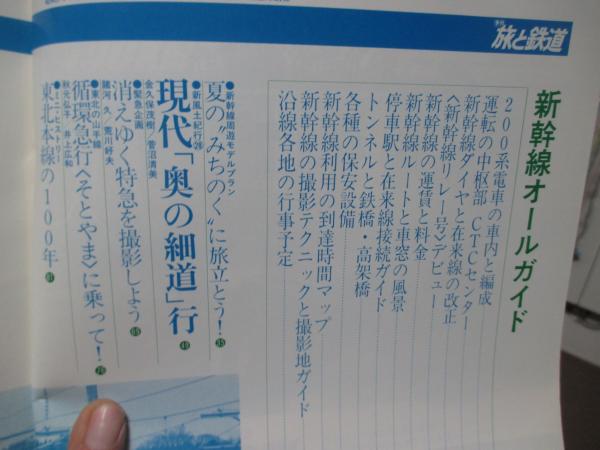 季刊 旅と鉄道
新幹線オールガイド
200系電車の車内と編成
運転の中枢部 CTCセンター
新幹線ダイヤと在来線の改正
〈新幹線リレー号〉デビュー
新幹線の運賃と料金
新幹線ルートと車窓の風景
停車駅と在来線接続ガイド
トンネルと鉄橋・高架橋
各種の保安設備
新幹線利用の到達時間マップ
新幹線の撮影テクニックと撮影地ガイド
沿線各地の行事予定
●新幹線周遊モデルプラン
夏の〝みちのく〟に旅立とう! 35
●新風土紀行㉖
現代「奥の細道」行 49
金久保茂樹/菅沼清美
●緊急企画
消えゆく特急を撮影しよう 65
諸河 久/荒川好夫
●東北の山手線
循環急行〈そとやま〉に乗って! 76
秋元弘子 井上広和
●ミニヒストリー
東北本線の100年 81